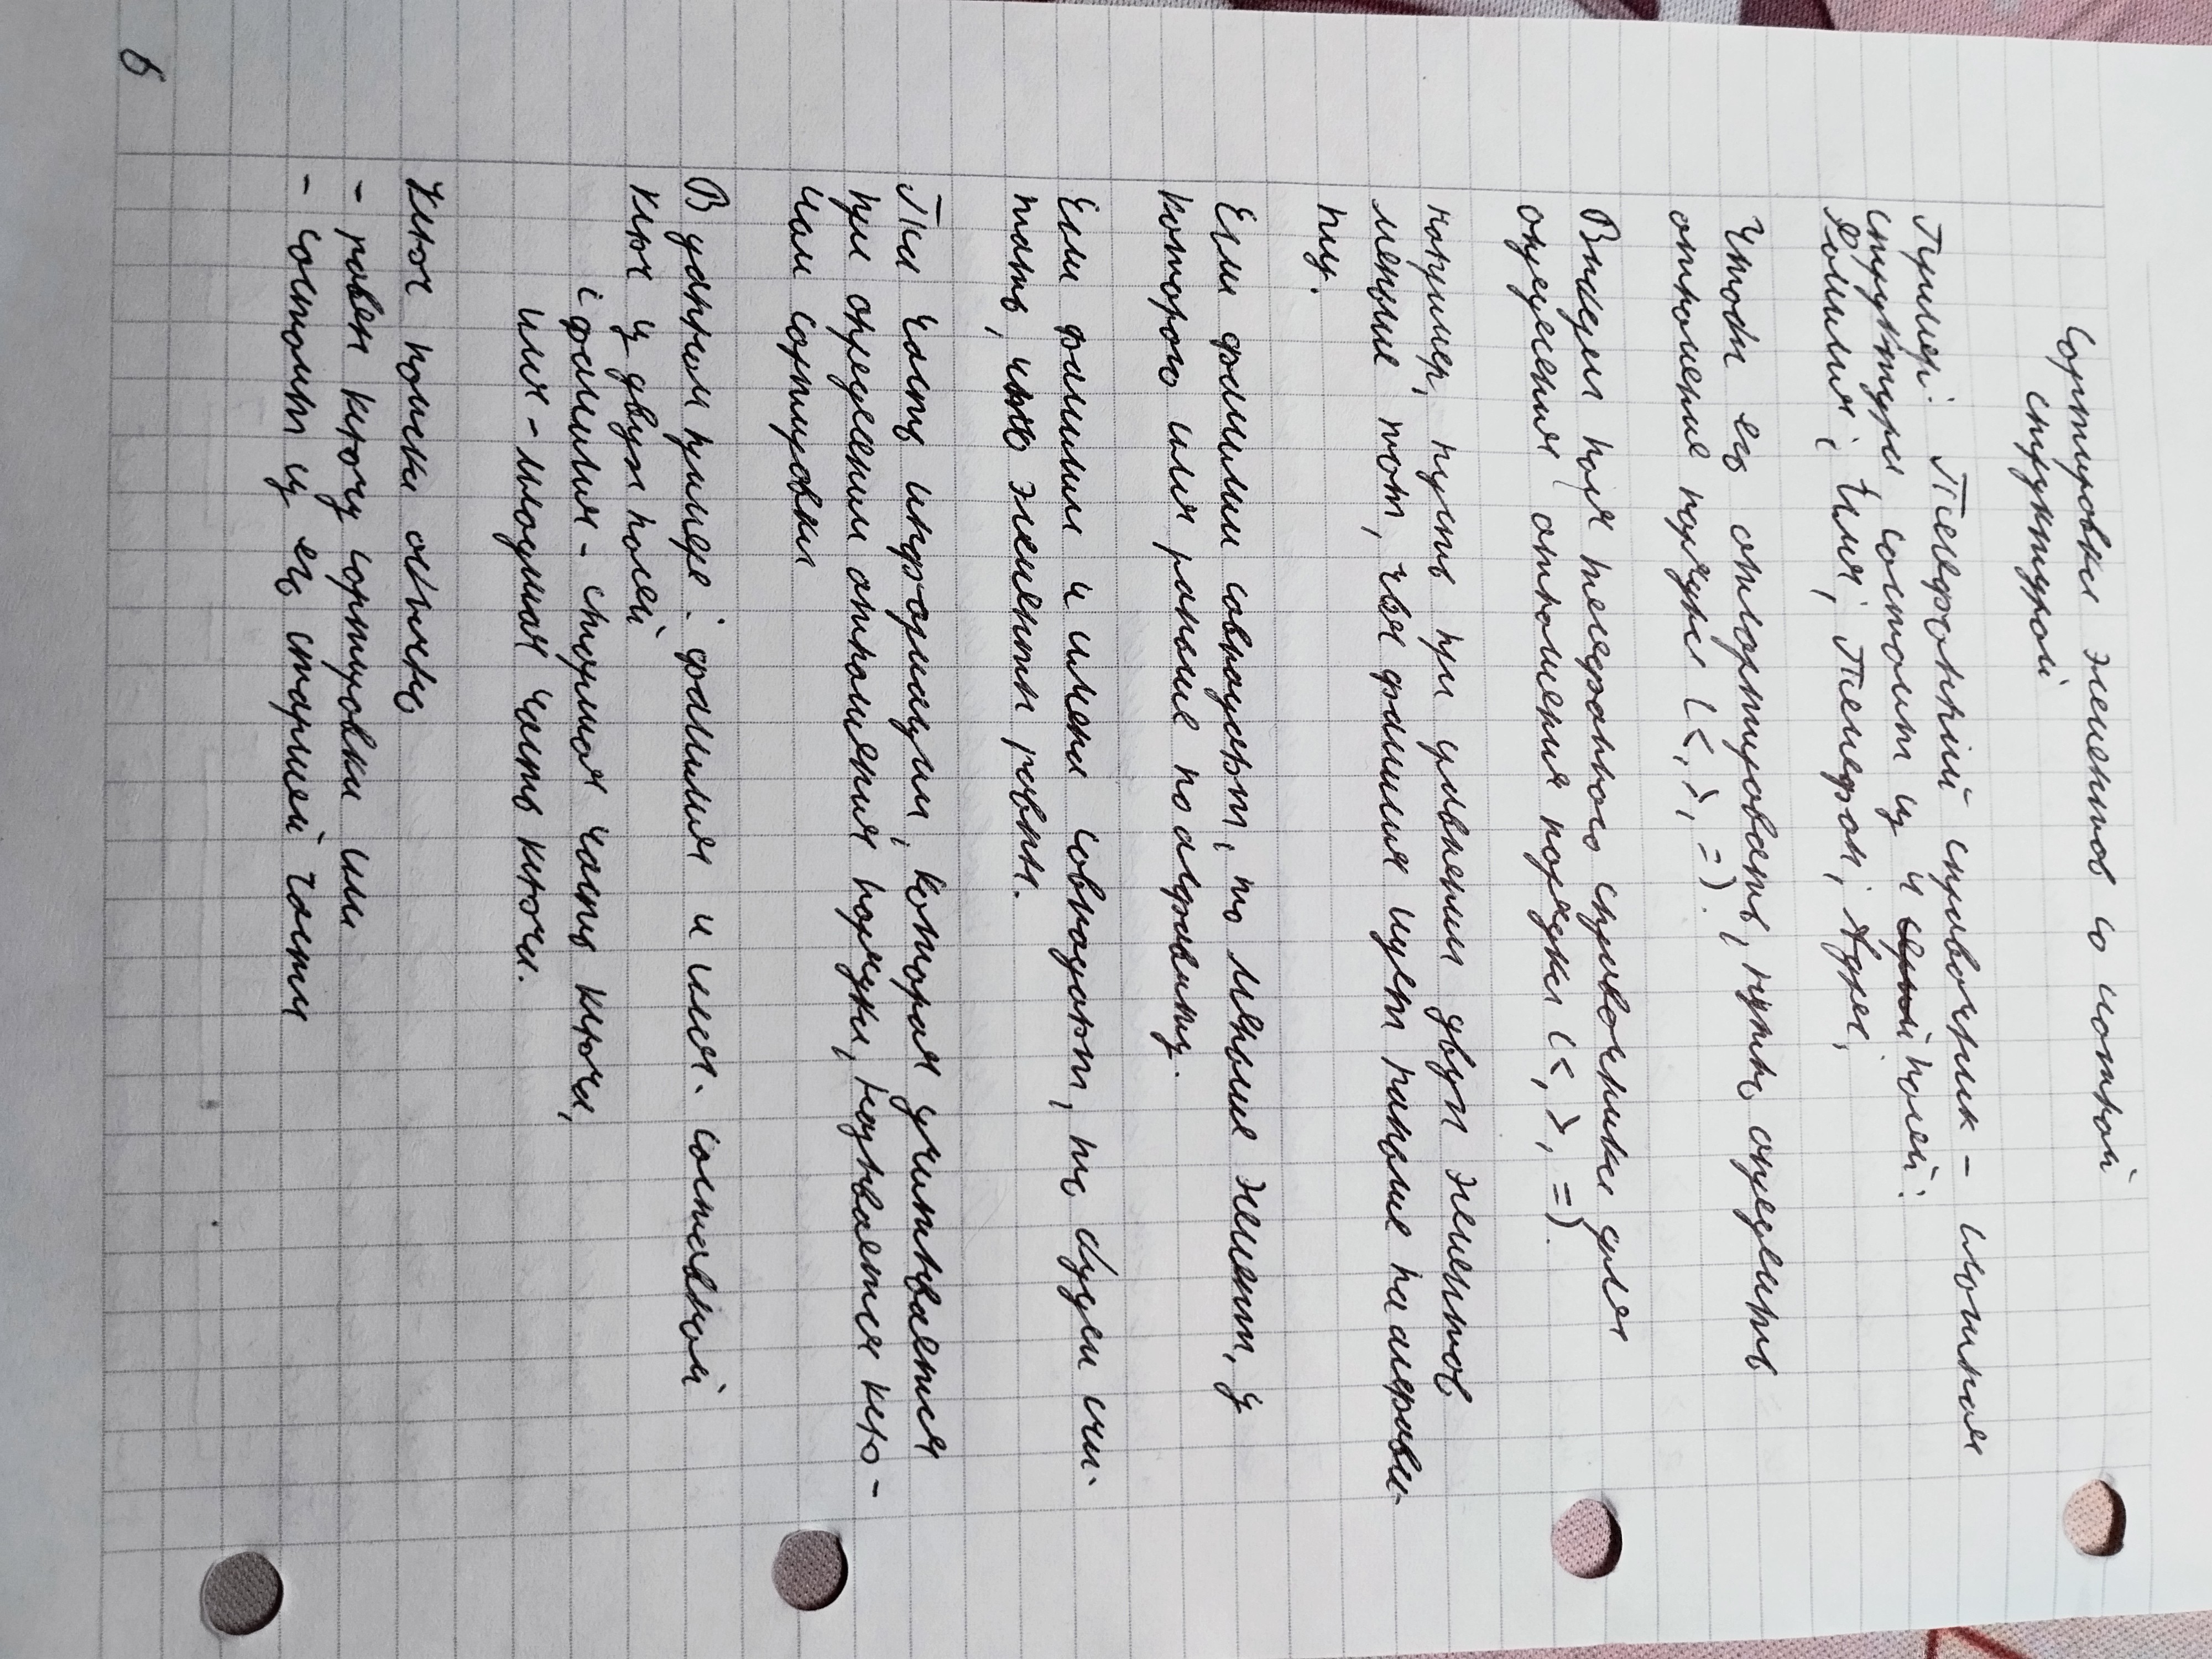 Сортировки элементов со сложной
структурой
Пример: Телефонный справочник – сложная
структура, состоит из 4 полей:
Фамилия; Имя; Телефон; Адрес;
Чтобы его отсортировать, нужно определить
отношение порядка (<, >, =).
Выберем поля телефонного справочника для
определения отношения порядка (<, >, =).
например, пусть при сравнении двух элементов
меньше тот, чья фамилия идет раньше по алфави-
ту.
Если фамилии совпадают, то меньше элемент, у
которого имя раньше по алфавиту.
Если фамилии и имена совпадают, то будем счи-
тать, что элементы равны.
Та часть информации, которая учитывается
при определении отношения порядка, называется клю-
чом сортировки
В данном примере: фамилия и имя - составной
ключ из двух полей
(фамилия – старшая часть ключа,
имя – младшая часть ключа.
Ключ поиска обычно
- равен ключу сортировки или
- состоит из его старшей части
6